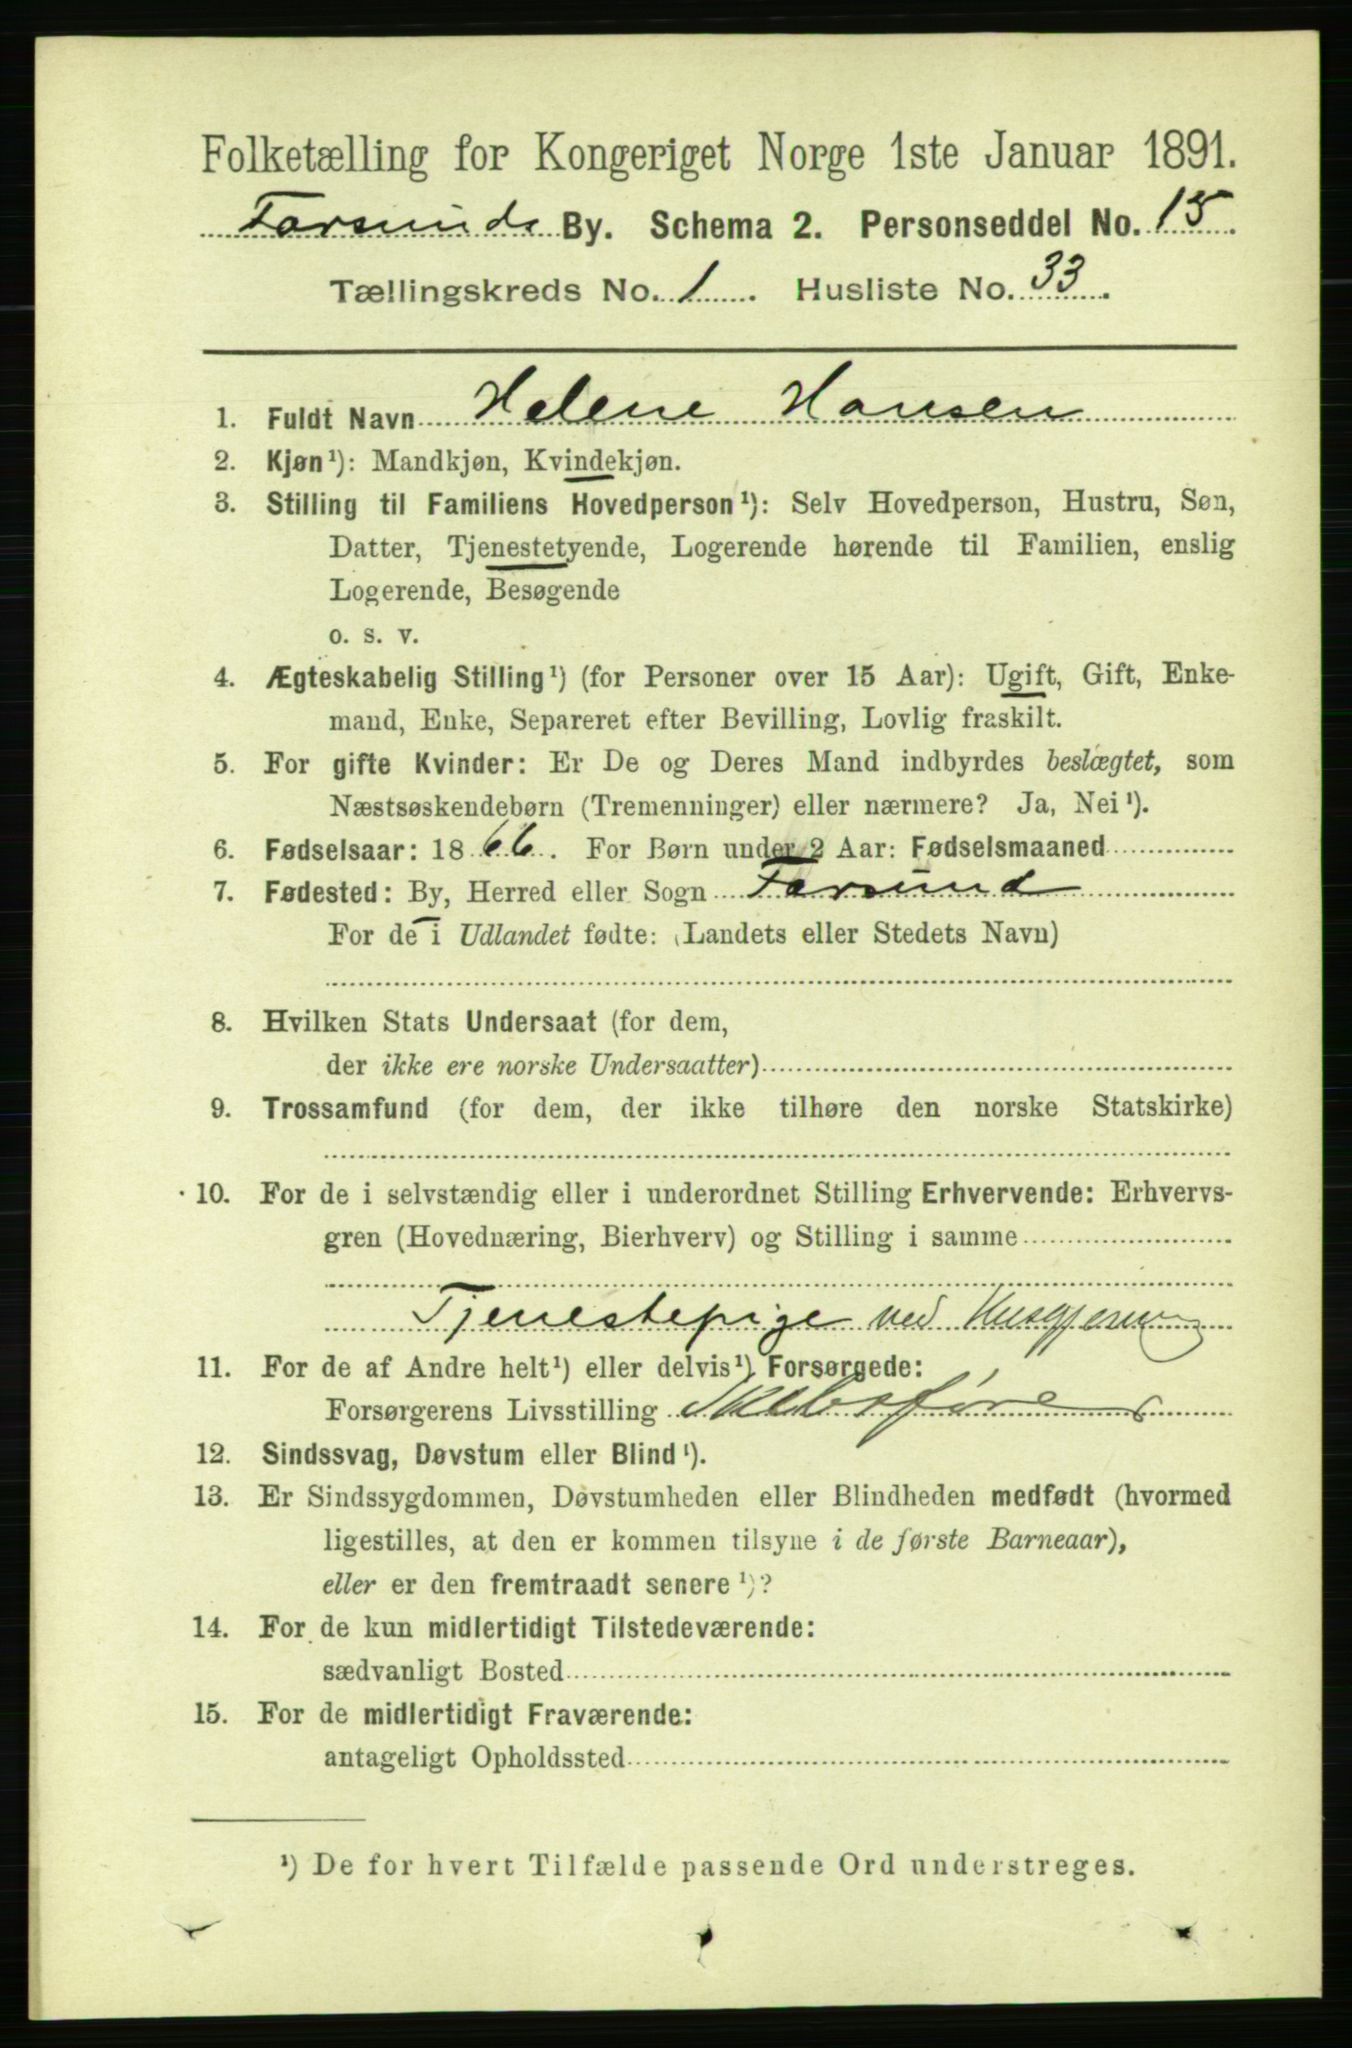 Folketælling for Kongeriget Norge 1ste Januar 1891.
Farsunds By. Schema 2. Personseddel No. 15.
Tællingskreds No. 1. Husliste No. 33.
1. Fuldt Navn Helene Hansen
2. Kjøn¹): Mandkjøn, Kvindekjøn.
3. Stilling til Familiens Hovedperson¹): Selv Hovedperson, Hustru, Søn,
Datter, Tjenestetyende, Logerende hørende til Familien, enslig
Logerende, Besøgende
o. s. v.
4. Ægteskabelig Stilling¹) (for Personer over 15 Aar): Ugift, Gift, Enke-
mand, Enke, Separeret efter Bevilling, Lovlig fraskilt.
5. For gifte Kvinder: Er De og Deres Mand indbyrdes beslægtet, som
Næstsøskendebørn (Tremenninger) eller nærmere? Ja, Nei¹).
6. Fødselsaar: 1866. For Børn under 2 Aar: Fødselsmaaned
7. Fødested: By, Herred eller Sogn Farsund
For de i Udlandet fødte: (Landets eller Stedets Navn)
8. Hvilken Stats Undersaat (for dem,
der ikke ere norske Undersaatter)
9. Trossamfund (for dem, der ikke tilhøre den norske Statskirke)
10. For de i selvstændig eller i underordnet Stilling Erhvervende: Erhvervs-
gren (Hovednæring, Bierhverv) og Stilling i samme
Tjenestepige ved Husgjerning
11. For de af Andre helt¹) eller delvis¹) Forsørgede:
Forsørgerens Livsstilling Skibsfører
12. Sindssvag, Døvstum eller Blind¹).
13. Er Sindssygdommen, Døvstumheden eller Blindheden medfødt (hvormed
ligestilles, at den er kommen tilsyne i de første Barneaar),
eller er den fremtraadt senere¹)?
14. For de kun midlertidigt Tilstedeværende:
sædvanligt Bosted
15. For de midlertidigt Fraværende:
antageligt Opholdssted
¹) De for hvert Tilfælde passende Ord understreges.